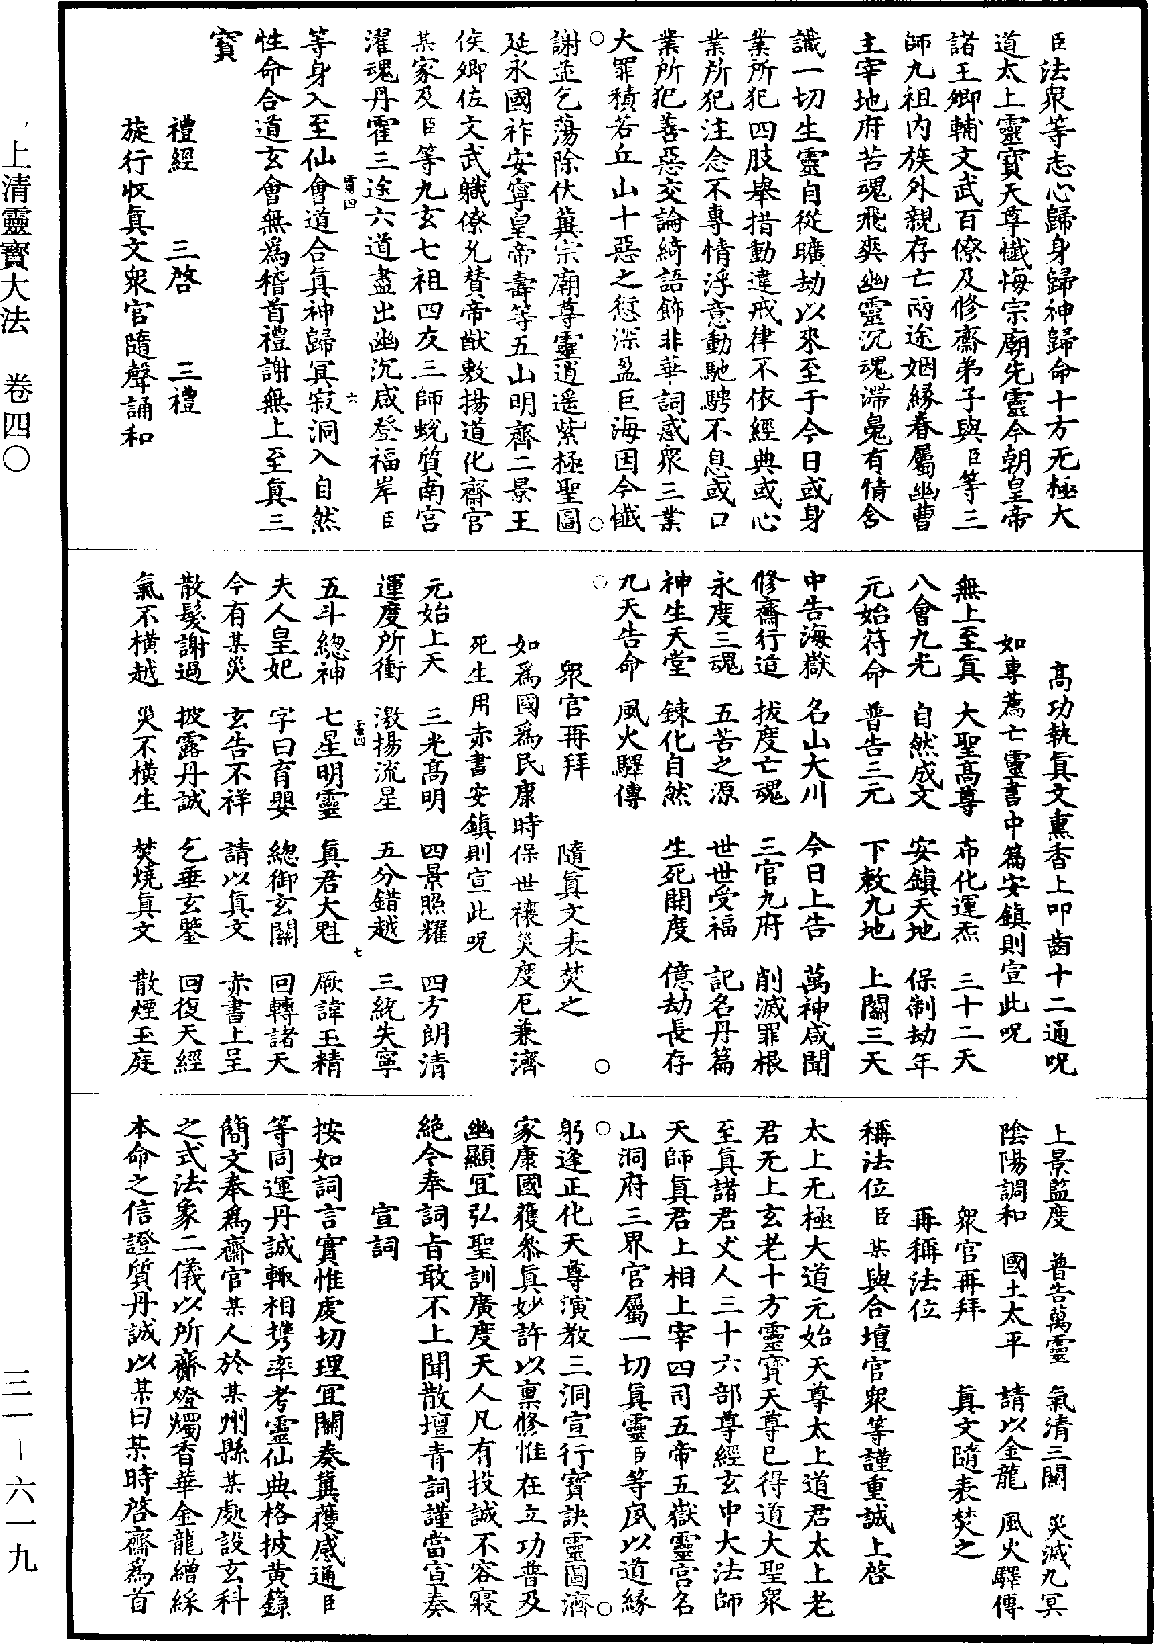 臣法衆等志心歸身歸神歸命十方无極大
道太上靈寶天尊懺悔宗廟先靈今朝皇帝
諸王卿輔文武百僚及修齋弟子與臣等三
師九祖内族外親存亡兩途姻緣眷屬幽曹
主宰地府苦魂飛爽幽靈沉魂滯魄有情含
識一切生靈自從曠劫以來至于今日或身
業所犯四肢舉措動違戒律不依經典或心
業所犯注念不專情浮意動馳騁不息或口
業所犯善惡交論綺語飾非華詞惑衆三業
大罪積若丘山十惡之愆深盈巨海因今懺
謝並乞蕩除伏冀宗廟尊靈逍遥紫極聖圖
延永國祚安寧皇帝壽等五山明齊二景王
侯卿佐文武職僚允替帝猷敷揚道化齋官
某家及臣等九玄七祖四友三師蜕質南宫
濯魂丹霍三途六道盡出幽沉咸登福岸臣
等身入至仙會道合真神歸冥寂洞入自然
性命合道玄會無為稽首禮謝無上至真三
寳
禮經　三啓　三禮
旋行收真文衆官隨聲誦和
高功執真文熏香上叩齒十二通呪
如專薦亡靈書中篇安鎮則宣此呪
無上至真　大聖高尊　布化運炁　三十二天
八會九光　自然成文　安鎮天地　保制劫年
元始符命　普告三元　下敕九地　上關三天
中告海嶽　名山大川　今日上告　萬神咸聞
修齋行道　拔度亡魂　三官九府　削滅罪根
永度三魂　五苦之源　世世受福　記名丹篇
神生天堂　鍊化自然　生死開度　億劫長存
九天告命　風火驛傳
衆官再拜　隨真文表焚之
如為國為民康時保世禳災度厄兼濟
死生用赤書安鎮則宣此呪
元始上天　三光高明　四景照耀　四方朗清
運度所衝　激揚流星　五分錯越　三統失寧
五斗總神　七星明靈　真君大魁　厥諱玉精
夫人皇妃　字曰育嬰　總御玄關　回轉諸天
今有某災　玄告不祥　請以真文　赤書上呈
散髮謝過　披露丹誠　乞垂玄鑒　回復天經
氣不横越　災不横生　焚燒真文　散煙玉庭
上景監度　普告萬靈　氣清三關　災滅九冥
陰陽調和　國土太平　請以金龍　風火驛傳
衆官再拜　真文隨表焚之
再稱法位
稱法位臣某與合壇官衆等謹重誠上啓
太上无極大道元始天尊太上道君太上老
君无上玄老十方靈寶天尊已得道大聖衆
至真諸君丈人三十六部尊經玄中大法師
天師真君上相上宰四司五帝五嶽靈宫名
山洞府三界官屬一切真靈臣等夙以道緣
躬逢正化天尊演教三洞宣行寳訣靈圖濟
家康國獲參真妙許以稟修惟在立功普及
幽顯冝弘聖訓廣度天人凡有投誠不容寢
絶今奉詞旨敢不上聞散壇青詞謹當宣奏
宣詞
按如詞言實惟虔切理冝關奏冀獲感通臣
等同運丹誠輒相携率考靈仙典格披黄籙
簡文奉為齋官某人於某州縣某處設玄科
之式法象二儀以所齋燈燭香華金龍繒綵
本命之信證質丹誠以某日某時啓齋為首
上清靈寶大法　卷四〇
三一－六一九